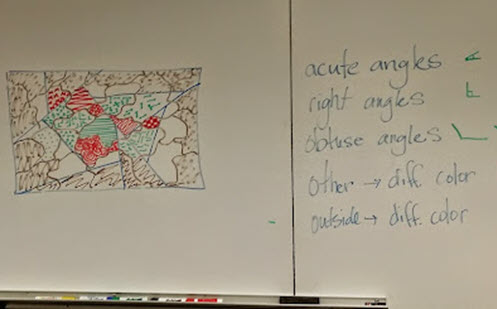 acute angles
right angles
obtuse angles
other → diff. color
outside → diff. color